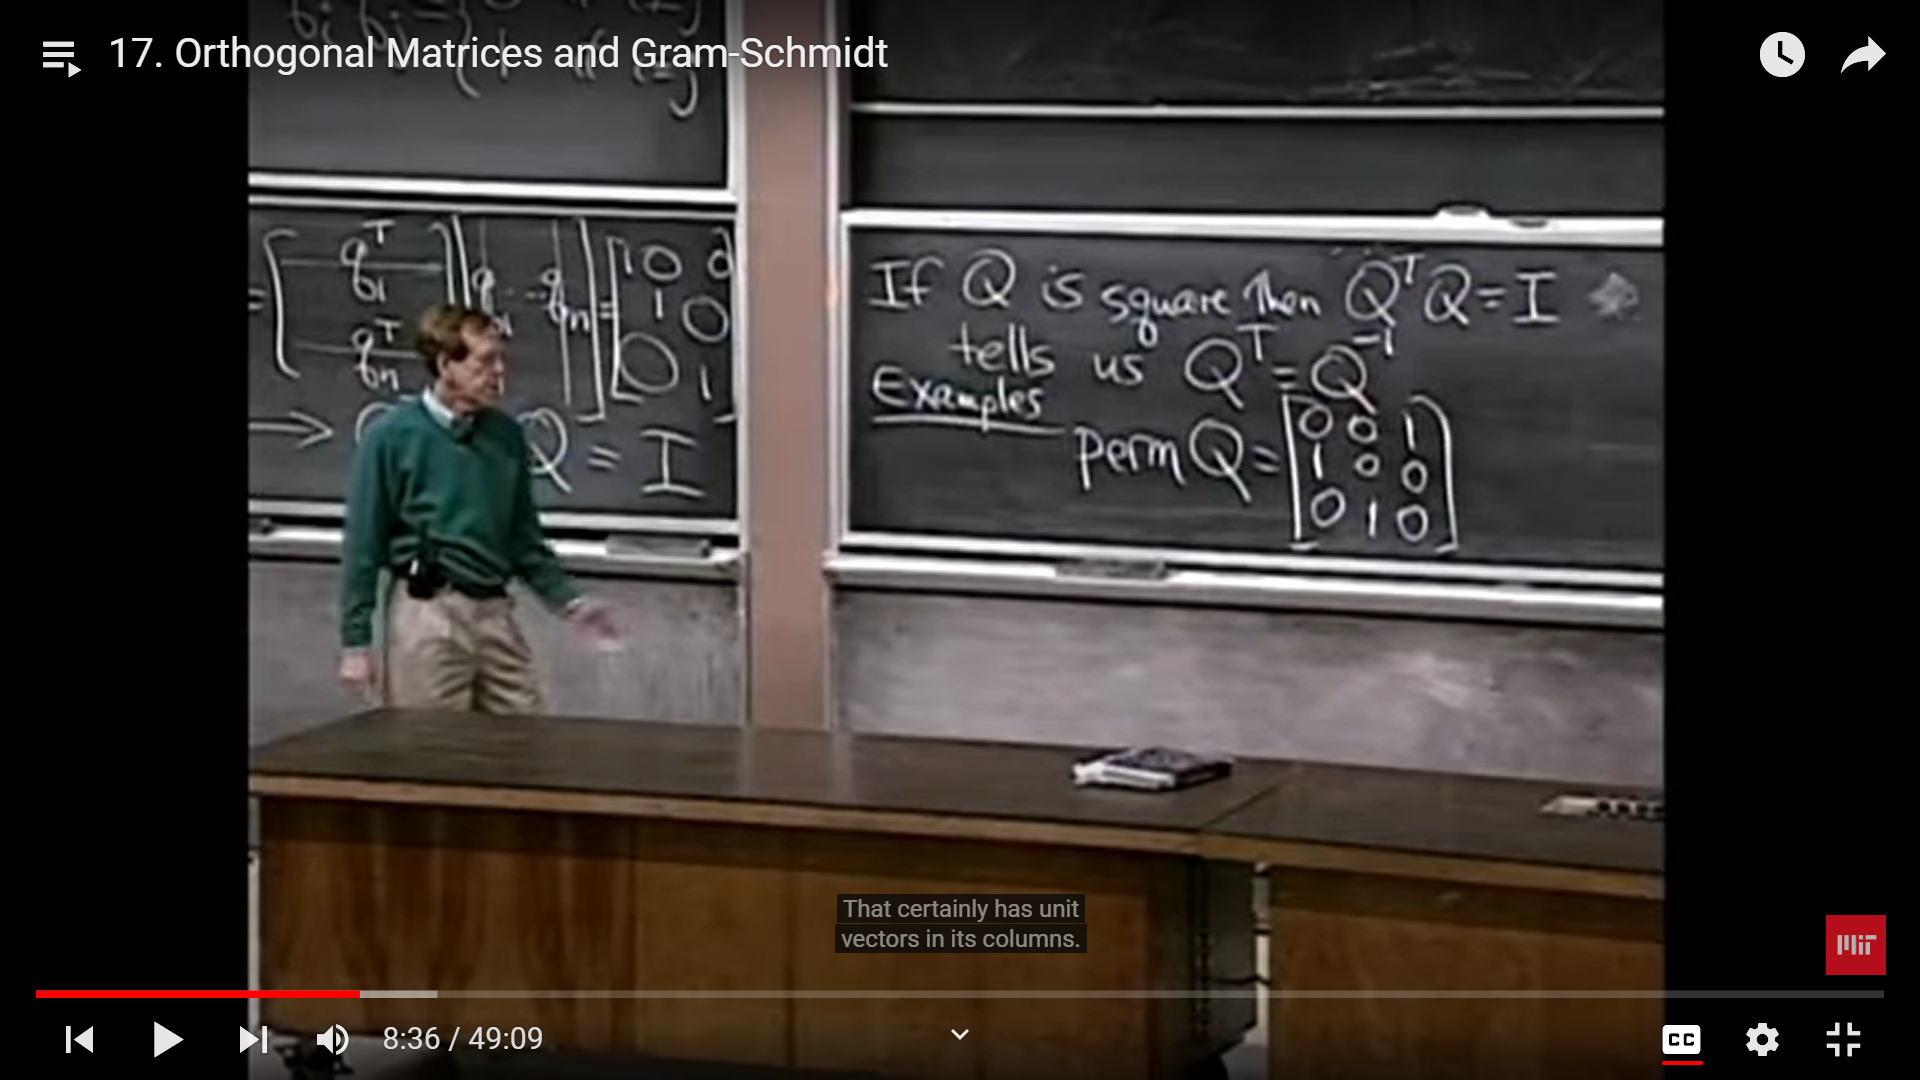 17. Orthogonal Matrices and Gram-Schmidt
= [ q₁ᵀ qₙᵀ ] [ q₁ ... qₙ ] = [ 1 0 0
1 0
0 1 ]
→ Q = I
If Q is square then QᵀQ = I
tells us Qᵀ = Q⁻¹
Examples
perm Q = [ 0 0 1
1 0 0
0 1 0 ]
That certainly has unit
vectors in its columns.
MIT
8:36 / 49:09
CC